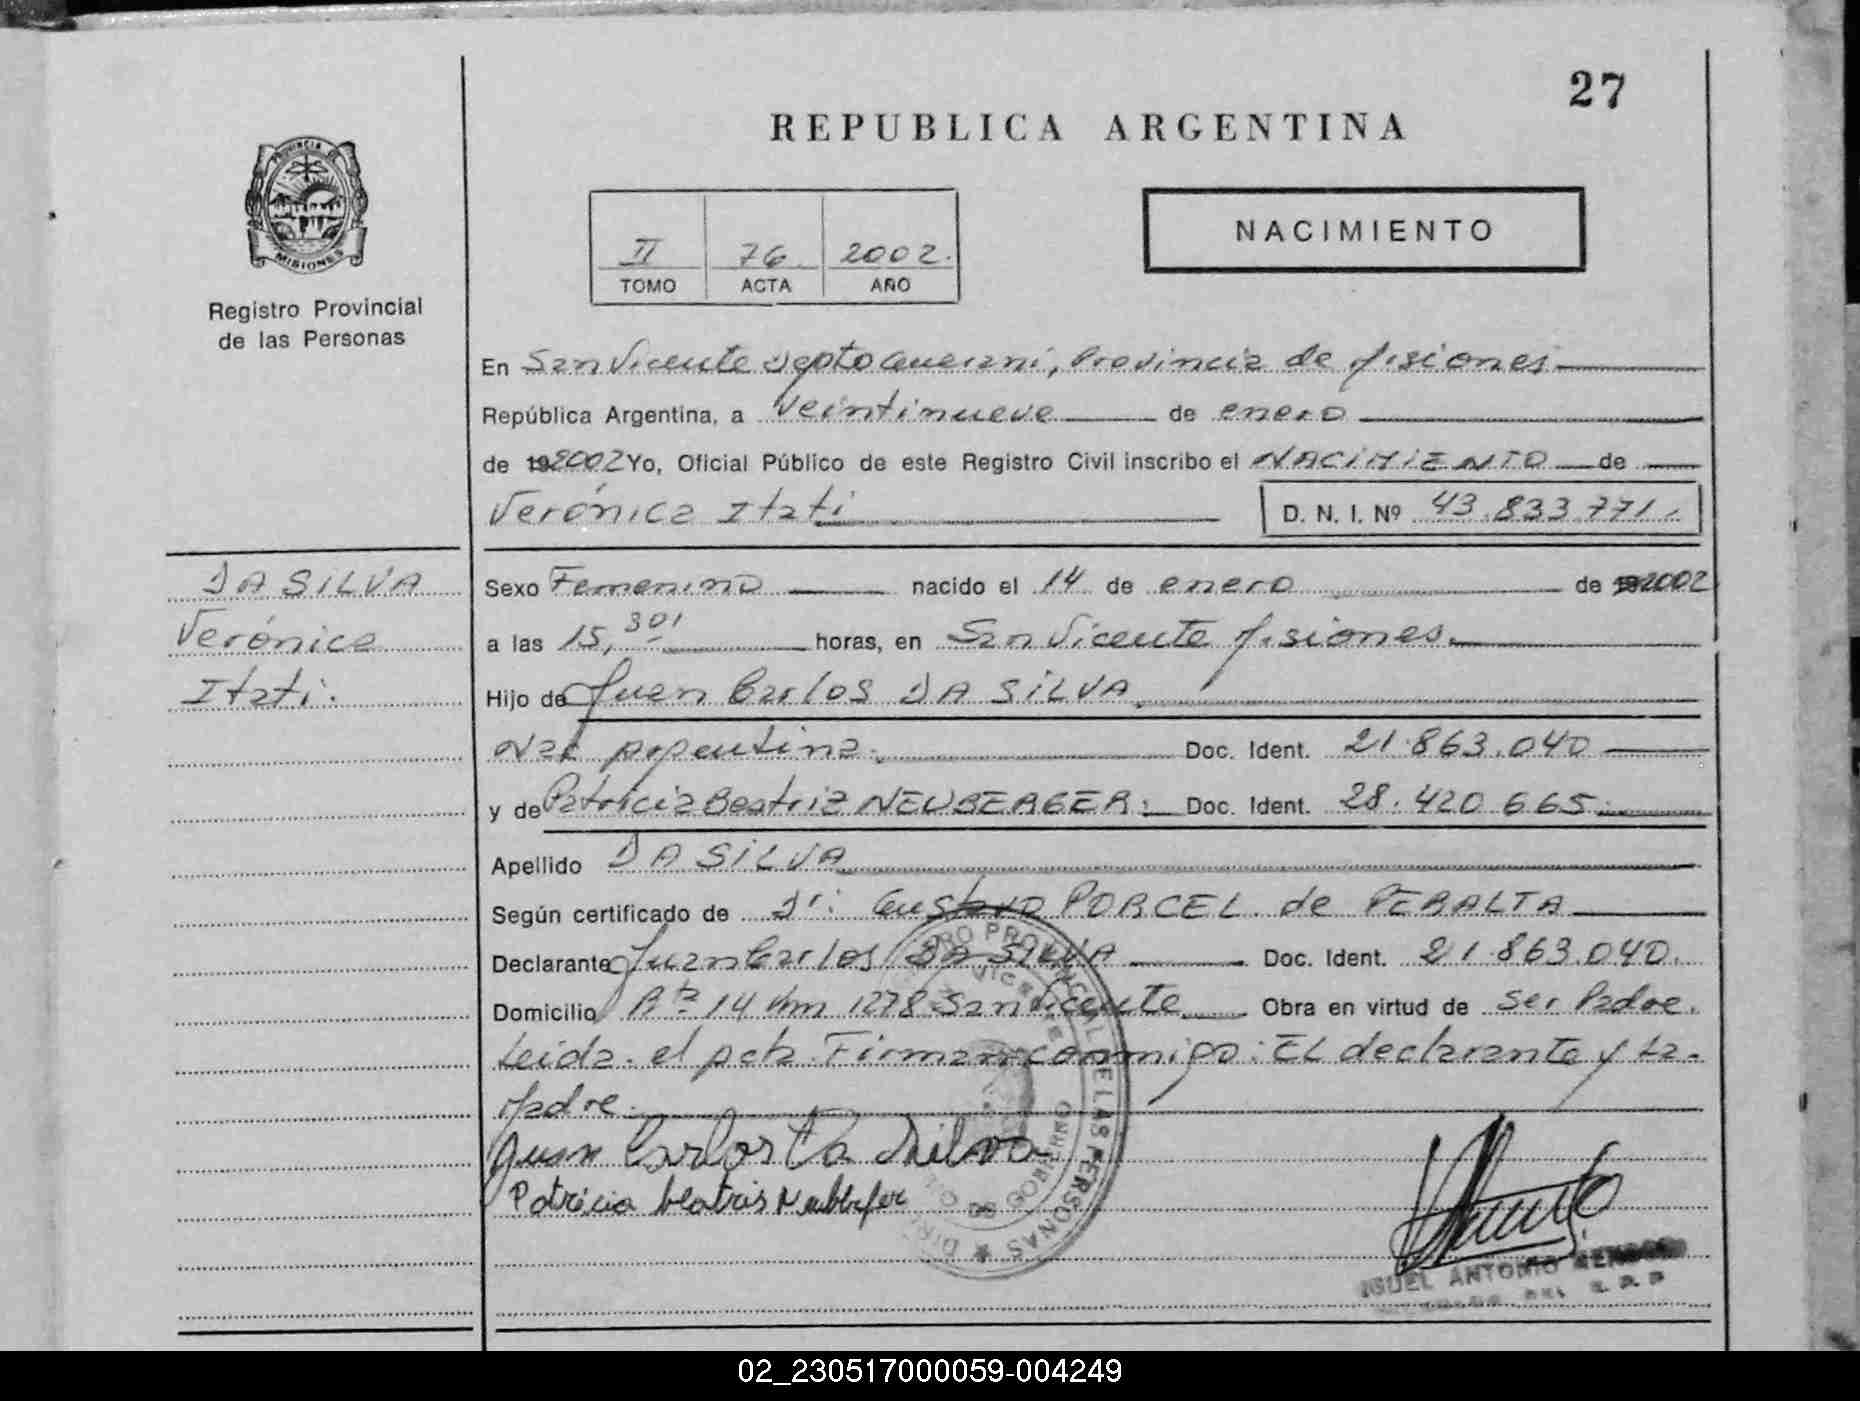 27
REPUBLICA ARGENTINA
PROVINCIA DE
MISIONES
Registro Provincial
de las Personas
II 76 2002.
TOMO ACTA AÑO
NACIMIENTO
En San Vicente Depto Guaraní, Provincia de Misiones
República Argentina, a veintinueve de enero
de 19 2002 Yo, Oficial Público de este Registro Civil inscribo el NACIMIENTO de
Verónica Itatí D. N. I. Nº 43.833.771.
DA SILVA
Verónica
Itatí.
Sexo Femenino nacido el 14 de enero de 19 2002
a las 15,30' horas, en San Vicente Misiones.
Hijo de Juan Carlos DA SILVA
Nac Argentina. Doc. Ident. 21.863.040
y de Patricia Beatriz NEUBERGER: Doc. Ident. 28.420.665.
Apellido DA SILVA
Según certificado de Dr: Gustavo PORCEL de PERALTA
Declarante Juan Carlos DA SILVA Doc. Ident. 21.863.040.
Domicilio Rta 14 Km 1278 San Vicente Obra en virtud de ser Padre.
Leida el acta Firman conmigo: EL declarante y La
Madre.
Juan Carlos Da Silva
Patricia beatris
PROVINCIAL DE LAS PERSONAS
ANTONIO
02_230517000059-004249